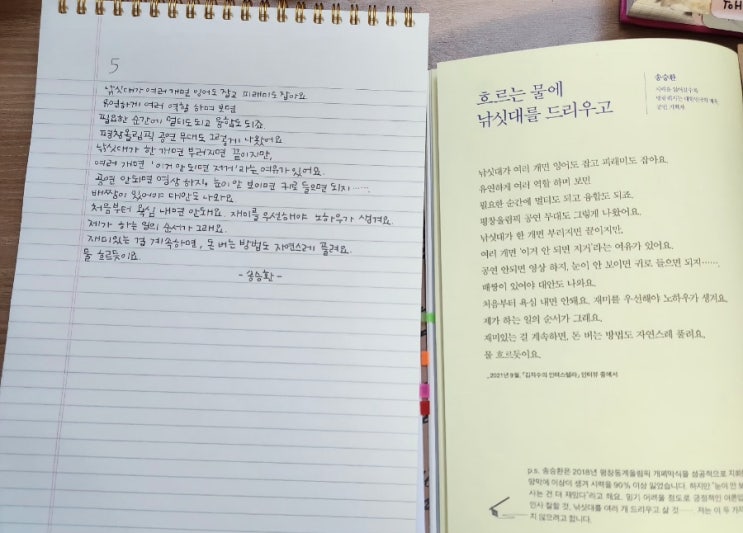 5
낚싯대가 여러 개면 잉어도 잡고 피래미도 잡아요.
유연하게 여러 역할 하며 보면
필요한 순간에 멀티도 되고 융합도 되죠.
평창올림픽 공연 무대도 그렇게 나왔어요
낚싯대가 한 개면 부러지면 끝이지만,
여러 개면 '이거 안 되면 저거'라는 여유가 있어요.
공연 안되면 영상 하지, 눈이 안 보이면 귀로 들으면 되지…….
배짱이 있어야 대안도 나와요.
처음부터 욕심 내면 안돼요. 재미를 우선해야 노하우가 생겨요.
제가 하는 일의 순서가 그래요.
재미있는 걸 계속하면, 돈 버는 방법도 자연스레 풀려요.
물 흐르듯이요.
-송승환-
TOH
흐르는 물에
낚싯대를 드리우고
송승환
공연 기획자
낚싯대가 여러 개면 잉어도 잡고 피래미도 잡아요.
유연하게 여러 역할 하며 보면
필요한 순간에 멀티도 되고 융합도 되죠.
평창올림픽 공연 무대도 그렇게 나왔어요.
낚싯대가 한 개면 부러지면 끝이지만,
여러 개면 '이거 안 되면 저거'라는 여유가 있어요.
공연 안되면 영상 하지, 눈이 안 보이면 귀로 들으면 되지…….
배짱이 있어야 대안도 나와요.
처음부터 욕심 내면 안돼요. 재미를 우선해야 노하우가 생겨요.
제가 하는 일의 순서가 그래요.
재미있는 걸 계속하면, 돈 버는 방법도 자연스레 풀려요.
물 흐르듯이요.
_2021년 9월, 「김지수의 인터스텔라」 인터뷰 중에서
p.s. 송승환은 2018년 평창동계올림픽 개폐막식을 성공적으로 지휘
망막에 이상이 생겨 시력을 90% 이상 잃었습니다. 하지만 "눈이 안 보
사는 건 더 재밌다"라고 해요. 믿기 어려울 정도로 긍정적인 어른입
인사 잘할 것, 낚싯대를 여러 개 드리우고 살 것…… 저는 이 두 가지
지 않으려고 합니다.